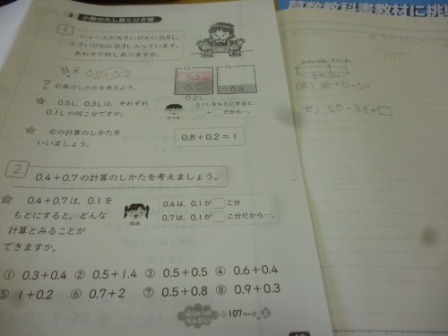 算数教科書教材に挑
3 小数のたし算とひき算
1 ジュースが大きいびんに0.5L、
小さいびんに0.3L入っています。
あわせて何Lありますか。
0.5+0.3
計算のしかたを考えよう。
☆ 0.5L、0.3Lは、それぞれ
0.1Lの何こ分ですか。
0.1Lをもとにすると、
+ だから…。
☆ 右の計算のしかたを
いいましょう。
0.8+0.2=1
2 0.4+0.7の計算のしかたを考えましょう。
☆ 0.4+0.7は、0.1を
もとにすると、どんな
計算とみることが
できますか。
0.4は、0.1が□こ分
0.7は、0.1が□こ分だから…。
① 0.3+0.4 ② 0.5+1.4 ③ 0.5+0.5 ④ 0.6+0.4
⑤ 1+0.2 ⑥ 0.7+2 ⑦ 0.5+0.8 ⑧ 0.9+0.3
107ページ